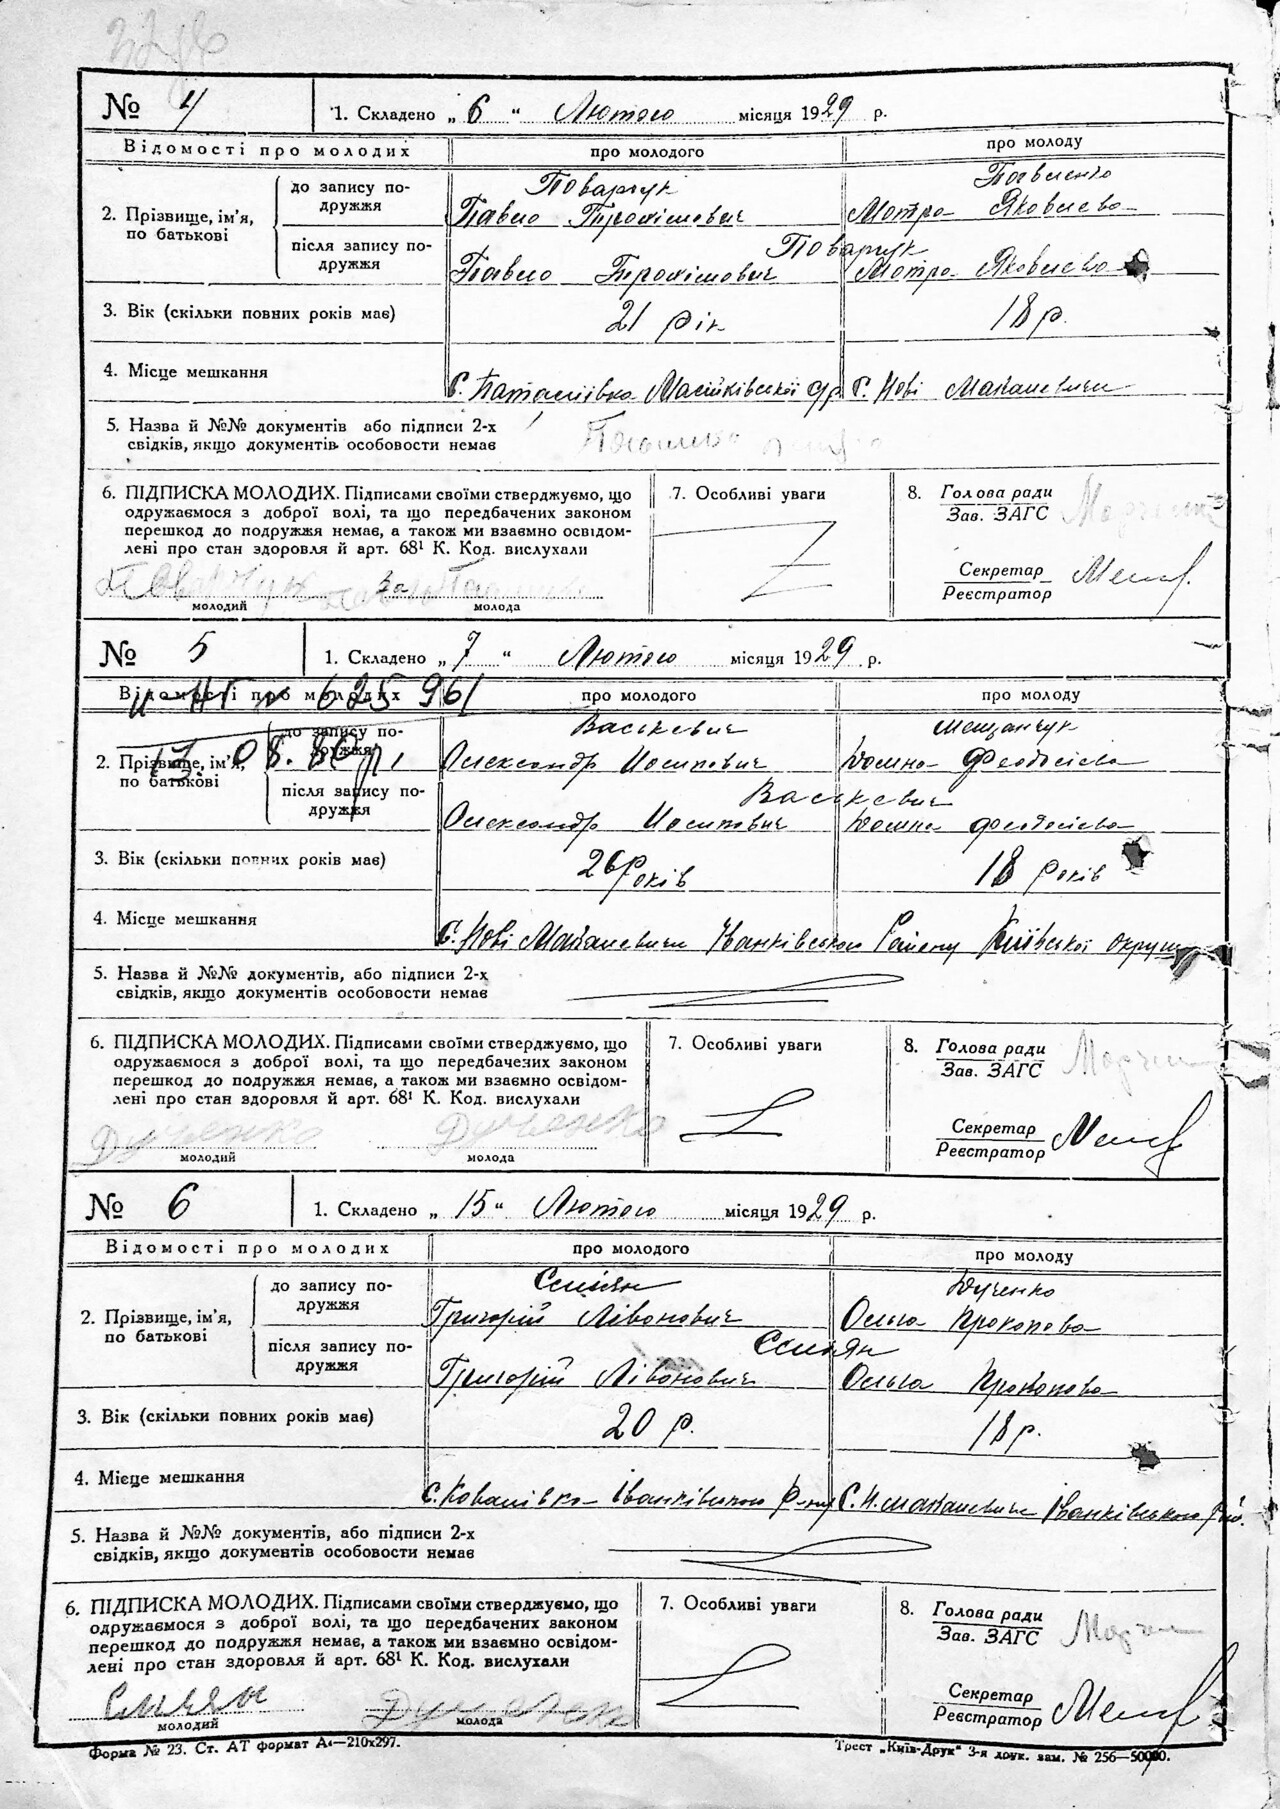 № 4
1. Складено „ 6 " Лютого місяця 1929 р.
Відомості про молодих
про молодого
про молоду
2. Прізвище, ім'я, по батькові
до запису по-
дружжя
Поварчук
Павло Трохімович
Мотра Яковлєва
після запису по-
дружжя
Поварчук
Павло Трохімович
Мотра Яковлєва
3. Вік (скільки повних років має)
21 рік
18 р.
4. Місце мешкання
С. Нові Макалевичи
5. Назва й №№ документів або підписи 2-х
свідків, якщо документів особовости немає
6. ПІДПИСКА МОЛОДИХ. Підписами своїми стверджуємо, що
одружаємося з доброї волі, та що передбачених законом
перешкод до подружжя немає, а також ми взаємно освідом-
лені про стан здоровля й арт. 68¹ К. Код. вислухали
Поварчук
молодий
за
молода
7. Особливі уваги
8. Голова ради
Зав. ЗАГС
Секретар
Реєстратор
№ 5
1. Складено „ 7 " Лютого місяця 1929 р.
Відомості про молодих
про молодого
про молоду
625961
2. Прізвище, ім'я,
по батькові
до запису по-
дружжя
13.08.80р.
Васькевич
Олександр Иосипович
Мещанчук
Домна Феодосієва
після запису по-
дружжя
Васькевич
Олександр Иосипович
Домна Феодосієва
3. Вік (скільки повних років має)
26 років
18 років
4. Місце мешкання
С. Нові Макалевичи Іванківського Району Київської округи
5. Назва й №№ документів, або підписи 2-х
свідків, якщо документів особовости немає
6. ПІДПИСКА МОЛОДИХ. Підписами своїми стверджуємо, що
одружаємося з доброї волі, та що передбачених законом
перешкод до подружжя немає, а також ми взаємно освідом-
лені про стан здоровля й арт. 68¹ К. Код. вислухали
Дученко
молодий
Дученко
молода
7. Особливі уваги
8. Голова ради
Зав. ЗАГС
Секретар
Реєстратор
№ 6
1. Складено „ 15 " Лютого місяця 1929 р.
Відомості про молодих
про молодого
про молоду
2. Прізвище, ім'я,
по батькові
до запису по-
дружжя
Григорій Лівонович
Дученко
Ольга Прокопова
після запису по-
дружжя
Григорій Лівонович
Ольга Прокопова
3. Вік (скільки повних років має)
20 р.
18 р.
4. Місце мешкання
С. Ковалівка Іванківського С. Н. Макалевичи Іванківського
5. Назва й №№ документів, або підписи 2-х
свідків, якщо документів особовости немає
6. ПІДПИСКА МОЛОДИХ. Підписами своїми стверджуємо, що
одружаємося з доброї волі, та що передбачених законом
перешкод до подружжя немає, а також ми взаємно освідом-
лені про стан здоровля й арт. 68¹ К. Код. вислухали
молодий
молода
7. Особливі уваги
8. Голова ради
Зав. ЗАГС
Секретар
Реєстратор
Форма № 23. Ст. АТ формат А₄—210х297.
Трест „Київ-Друк" 3-я друк. зам. № 256—50000.